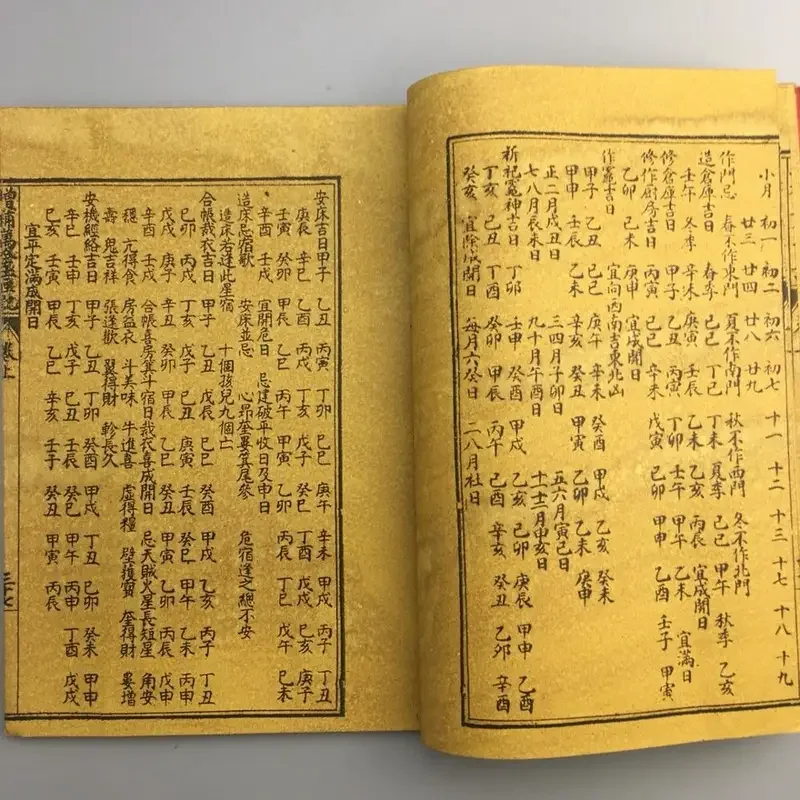 小月 初一 初二 初六 初七 十一 十二 十三 十七 十八 十九
廿三 廿四 廿八 廿九
作門忌 春不作東門 夏不作南門 秋不作西門 冬不作北門
造倉庫吉日 春季 己巳 丁巳 丁未 夏季 己巳 甲午 秋季 乙亥
壬午 冬季 辛未 庚寅 壬辰 乙未 乙亥 丙辰 宜成開日
修倉庫吉日 甲子 乙丑 丙寅 丁卯 壬午 甲午 乙未 宜滿日
修作厨房吉日 丙寅 己巳 辛未 戊寅 己卯 甲申 乙酉 壬子 甲寅
乙卯 己未 庚申 宜成開日
作竈吉日 宜向西南吉東北凶
甲子 乙丑 己巳 庚午 辛未 癸酉 甲戌 乙亥 癸未
甲申 壬辰 乙未 辛亥 癸丑 甲寅 乙卯 己未 庚申
正二月戌丑日 三四月子卯日 五六月寅巳日
七八月辰未日 九十月午酉日 十土月申亥日
祈祀竈神吉日 丁卯 壬申 癸酉 甲戌 乙亥 己卯 庚辰 甲申 乙酉
丁亥 己丑 丁酉 癸卯 丙午 己酉 辛亥 癸丑 乙卯 辛酉
癸亥 宜除成開日 每月六癸日 二八月社日
安床吉日 甲子 乙丑 丙寅 丁卯 己巳 庚午 辛未 甲戌 丙子 丁丑
庚辰 辛巳 丁亥 乙酉 丙戌 戊子 癸巳 丁酉 戊戌 己亥 庚子
壬寅 癸卯 甲辰 乙巳 丙午 甲寅 乙卯 丙辰 丁巳 戊午 己未
辛酉 壬戌 宜開危日 忌建破平收日及申日
造床忌宿歌 安床並忌 心昴奎婁箕尾參 危宿逢之總不安
造床若逢此星宿 十個孩兒九個亡
合帳裁衣吉日 甲子 乙丑 戊辰 己巳 癸酉 甲戌 乙亥 丙子 丁丑
己卯 丙戌 丁亥 戊子 己丑 庚寅 壬辰 癸巳 甲午 乙未 丙申
戊戌 庚子 辛丑 癸卯 甲辰 乙巳 癸丑 甲寅 乙卯 丙辰 戊申
辛酉 合帳喜房箕斗宿日裁衣喜成開日 忌天賊火星長短星 角安
穩 亢得食 房益衣 斗美味 牛進喜 虛得糧 壁獲寶 奎得財 婁增
壽 鬼吉祥 張逢歡 翼得財 軫長久
安機經絡吉日 甲子 乙丑 丁卯 癸酉 甲戌 丁丑 己卯 癸未 甲申
辛巳 壬申 丁亥 戊子 己丑 壬辰 癸巳 甲午 丙申 丁酉 戊戌
己亥 壬寅 甲辰 乙巳 辛亥 壬子 癸丑 甲寅 丙辰
宜平定滿成開日
增補萬全玉匣記 卷上 三十七